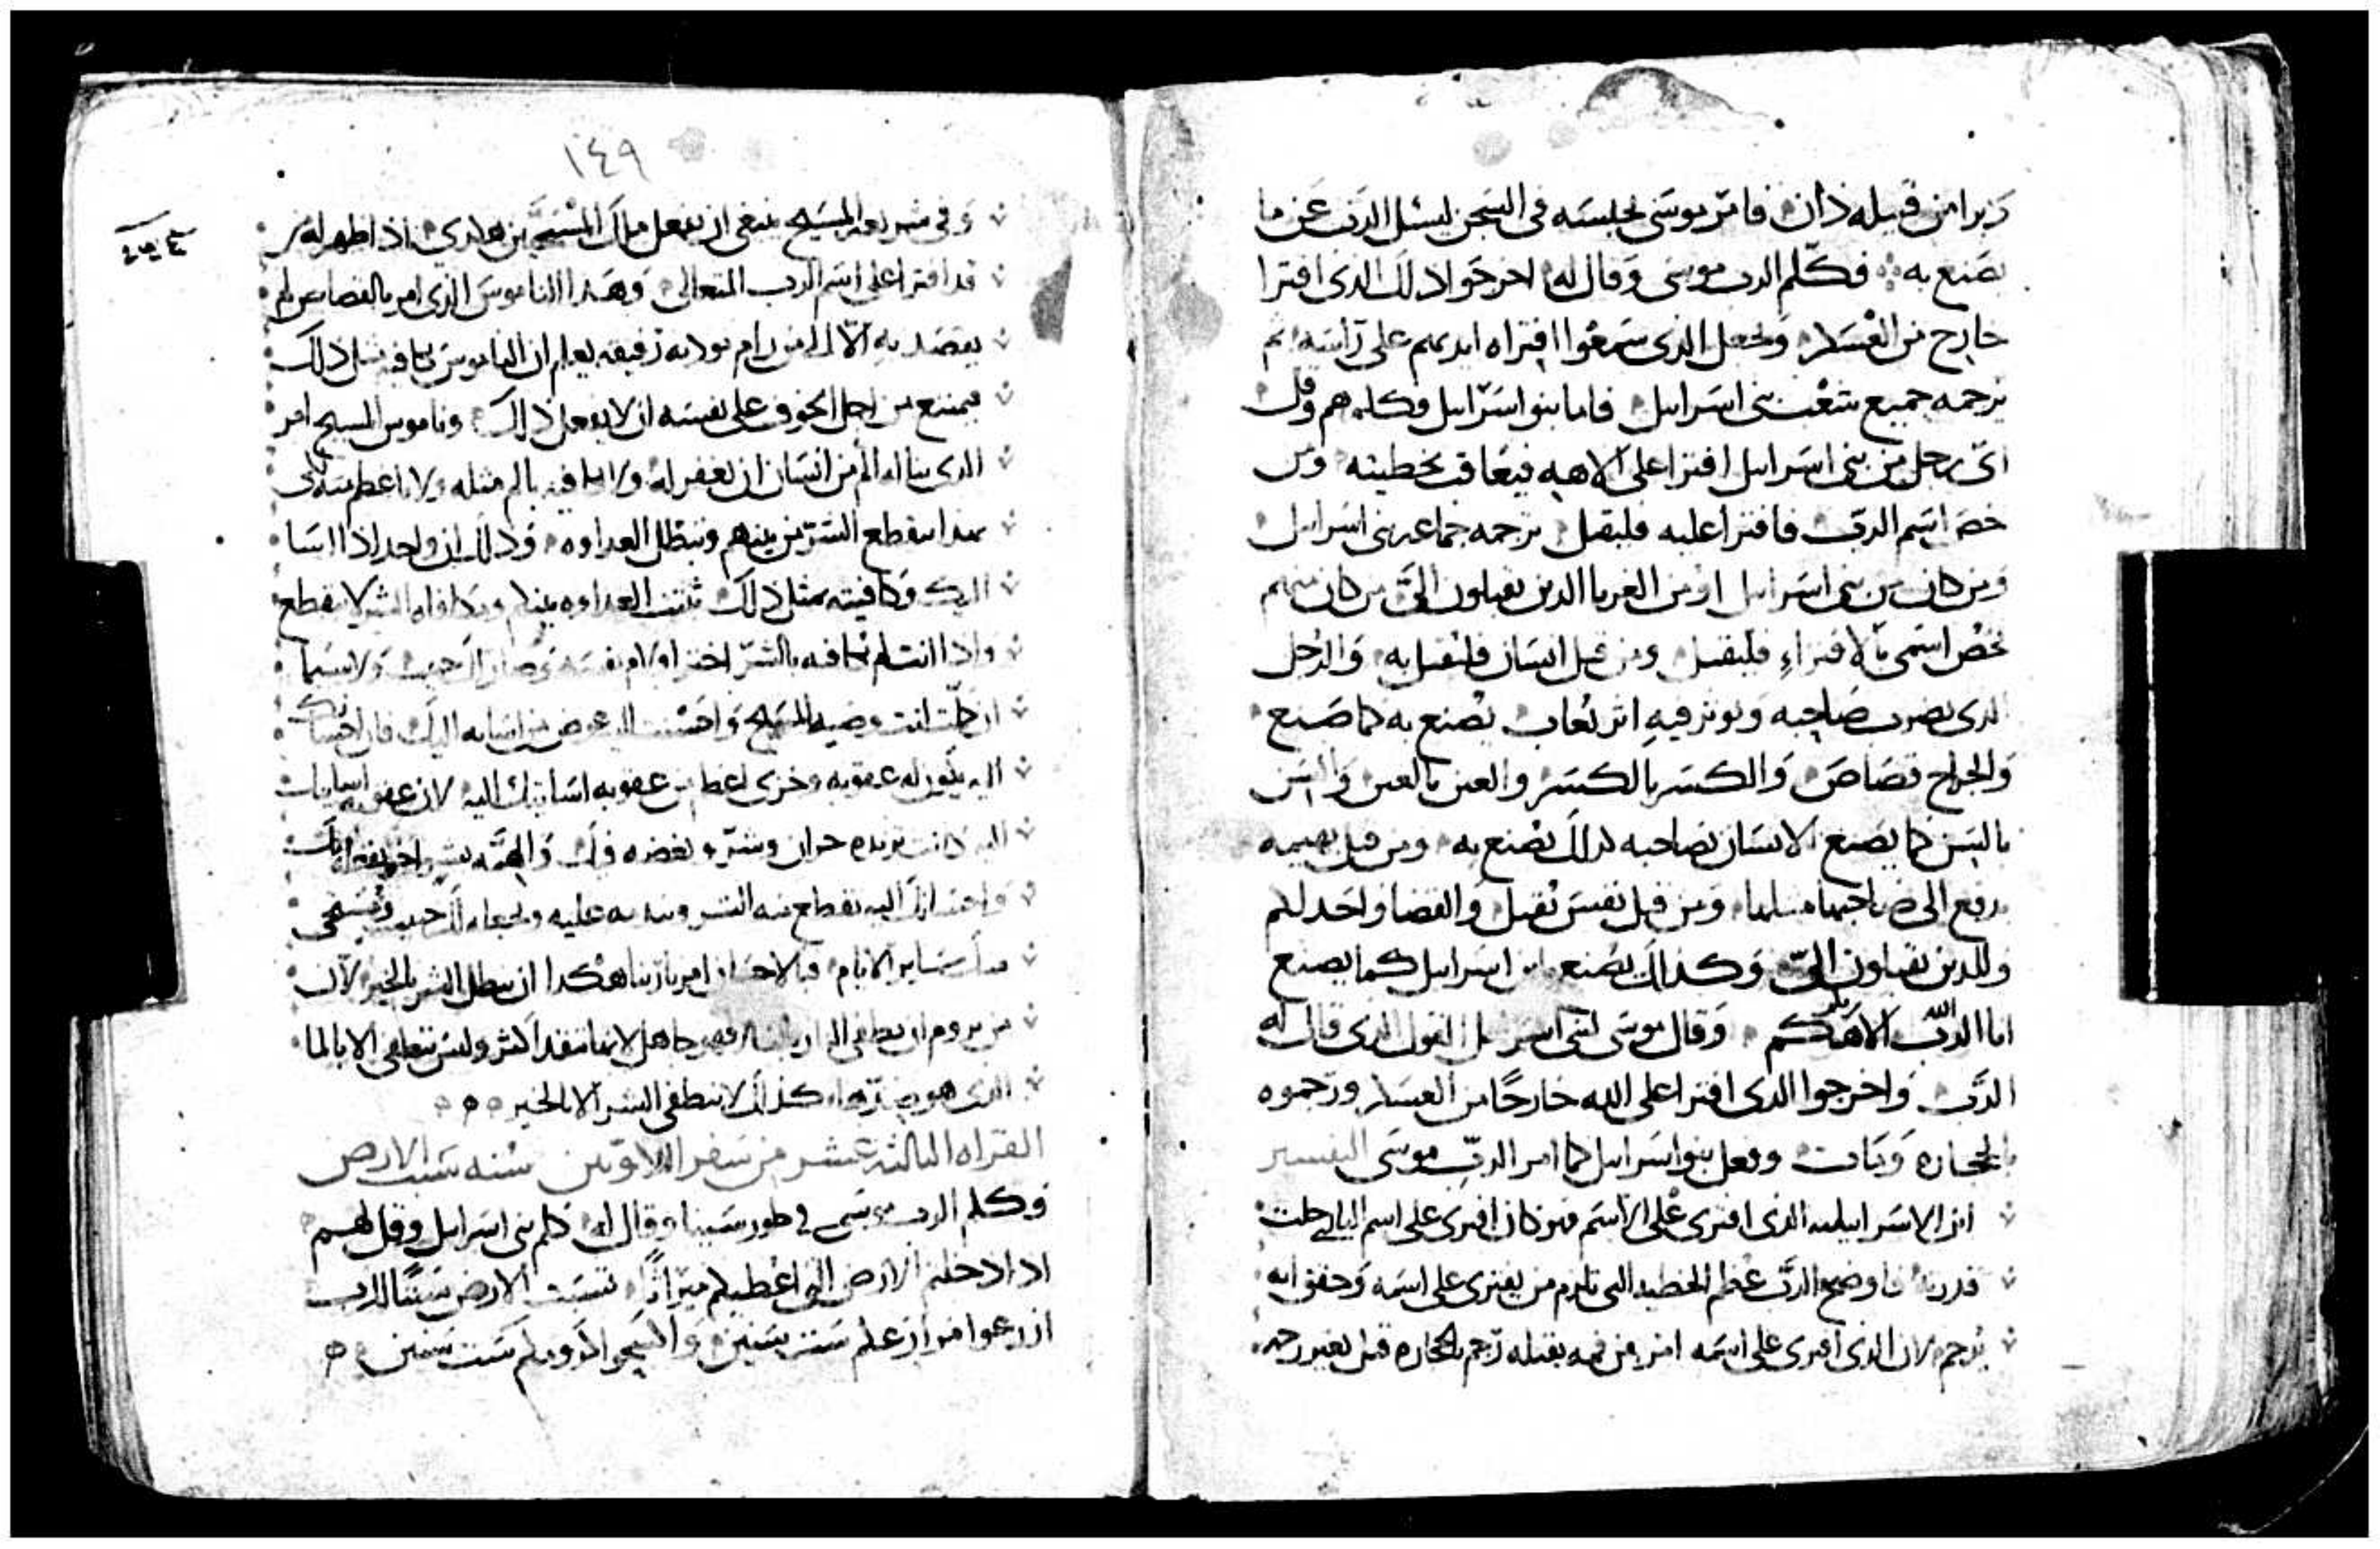 دبرا من قبيله ذان فامر موسى بحبسه فى السجن ليسل الرب عن ما
يصنع به فكلم الرب موسى وقال له اخرجوا ذلك الذى افترا
خارج من العسكر وليجعل الذى سمعوا افتراه ايديهم على راسه ثم
يرجمه جميع شعب بنى اسراييل فاما بنو اسراييل فكلمهم وقل
اى رجل من بنى اسراييل افترا على الاهه فيعاقب بخطيته ومن
خص اسم الرب فافترا عليه فليقتل يرجمه جماعه بنى اسراييل
ومن كان من بنى اسراييل او من الغربا الذين يقبلون الىّ من كان منهم
يخص اسمى بالافتراء فليقتل ومن قتل انسان فليقتل به والرجل
الذى يضرب صاحبه ويوثر فيه اثر يعاب يصنع به كما صنع
والجراح قصاص والكسر بالكسر والعين بالعين والسن
بالسن كما يصنع الانسان بصاحبه كذلك يصنع به ومن قتل بهيمه
يدفع الى صاحبها مثلها ومن قتل نفس يقتل والقضا واحد لكم
وللذين يقبلون الىّ وكذلك يصنع اسراييل كما يصنع
انا الرب الله الاهكم وقال موسى لبنى اسراييل القول الذى قال له
الرب واخرجوا الذى افترا على الله خارجًا من العسكر ورجموه
بالحجاره ومات وفعل بنو اسراييل كما امر الرب موسى التفسير
ابن الاسراييليه الذى افترى على الاسم فمن كان افترى على اسم
فاوضح الرب عظم الخطيه التى تلزم من يفترى على اسمه وحقق انه
يرجم لان الذى افترى على اسمه امر من فمه بقتله رجم بالحجاره قتل بغير رحمه
١٤٩
وفى شريعه المسيح ينبغى ان يفعل ملك المسيحيين هكذى اذا ظهر له من
قد افترا على اسم الرب المتعالى وهذا الناموس الذى امر بالقصاص لم
يقصد به الا من رام يوذيه رفيقه يعلم ان الناموس يكافيه مثل ذلك
فيمتنع من اجل الخوف على نفسه ان لا يفعل ذلك وناموس المسيح امر
الذى يناله الم من انسان ان يغفر له ولا يكافيه بالم مثله ولا اعظم منه
بهذا ينقطع الشر من بينهم وتبطل العداوه وذلك ان واحد اذا اسا
اليك وكافيته بمثل ذلك ثبتت العداوه بينكم الشر لا ينقطع
واذا انت لم تكافيه بالشر اخزا ولام نفسه وصار لك حبيب ولاسيما
ان كملت انت وصيه المسيح واحسنت اليه عوض من اسايه اليك فان احسانك
اليه يكون له عقوبه وخزى اعظم من عقوبه اسايتك اليه لان عقوبه
اليه كانت تزيده حران وشر وبغضه فيك
واحسانك اليه يقطع منه الشر ويجعله لك حبيب ويستحى
منك ساير الايام فبالاحسان امر ربنا هكدا ان يبطل الشر بالخير لان
من يروم ان يطفى النار بالنار فهو جاهل لانها تتقد اكثر وليس تنطفى الا بالما
الذى هو ضدها كذلك لا ينطفى الشر الا بالخير
القراه الثالثه عشر من سفر اللاويين سنه سبت الارض
وكلم الرب موسى فى طور سينا وقال له كلم بنى اسراييل وقل لهم
اذا دخلتم الارض التى اعطيكم ميراثًا تسبت الارض سبتًا للرب
ازرعوا مزارعكم ست سنين واكسحوا كرومكم ست سنين